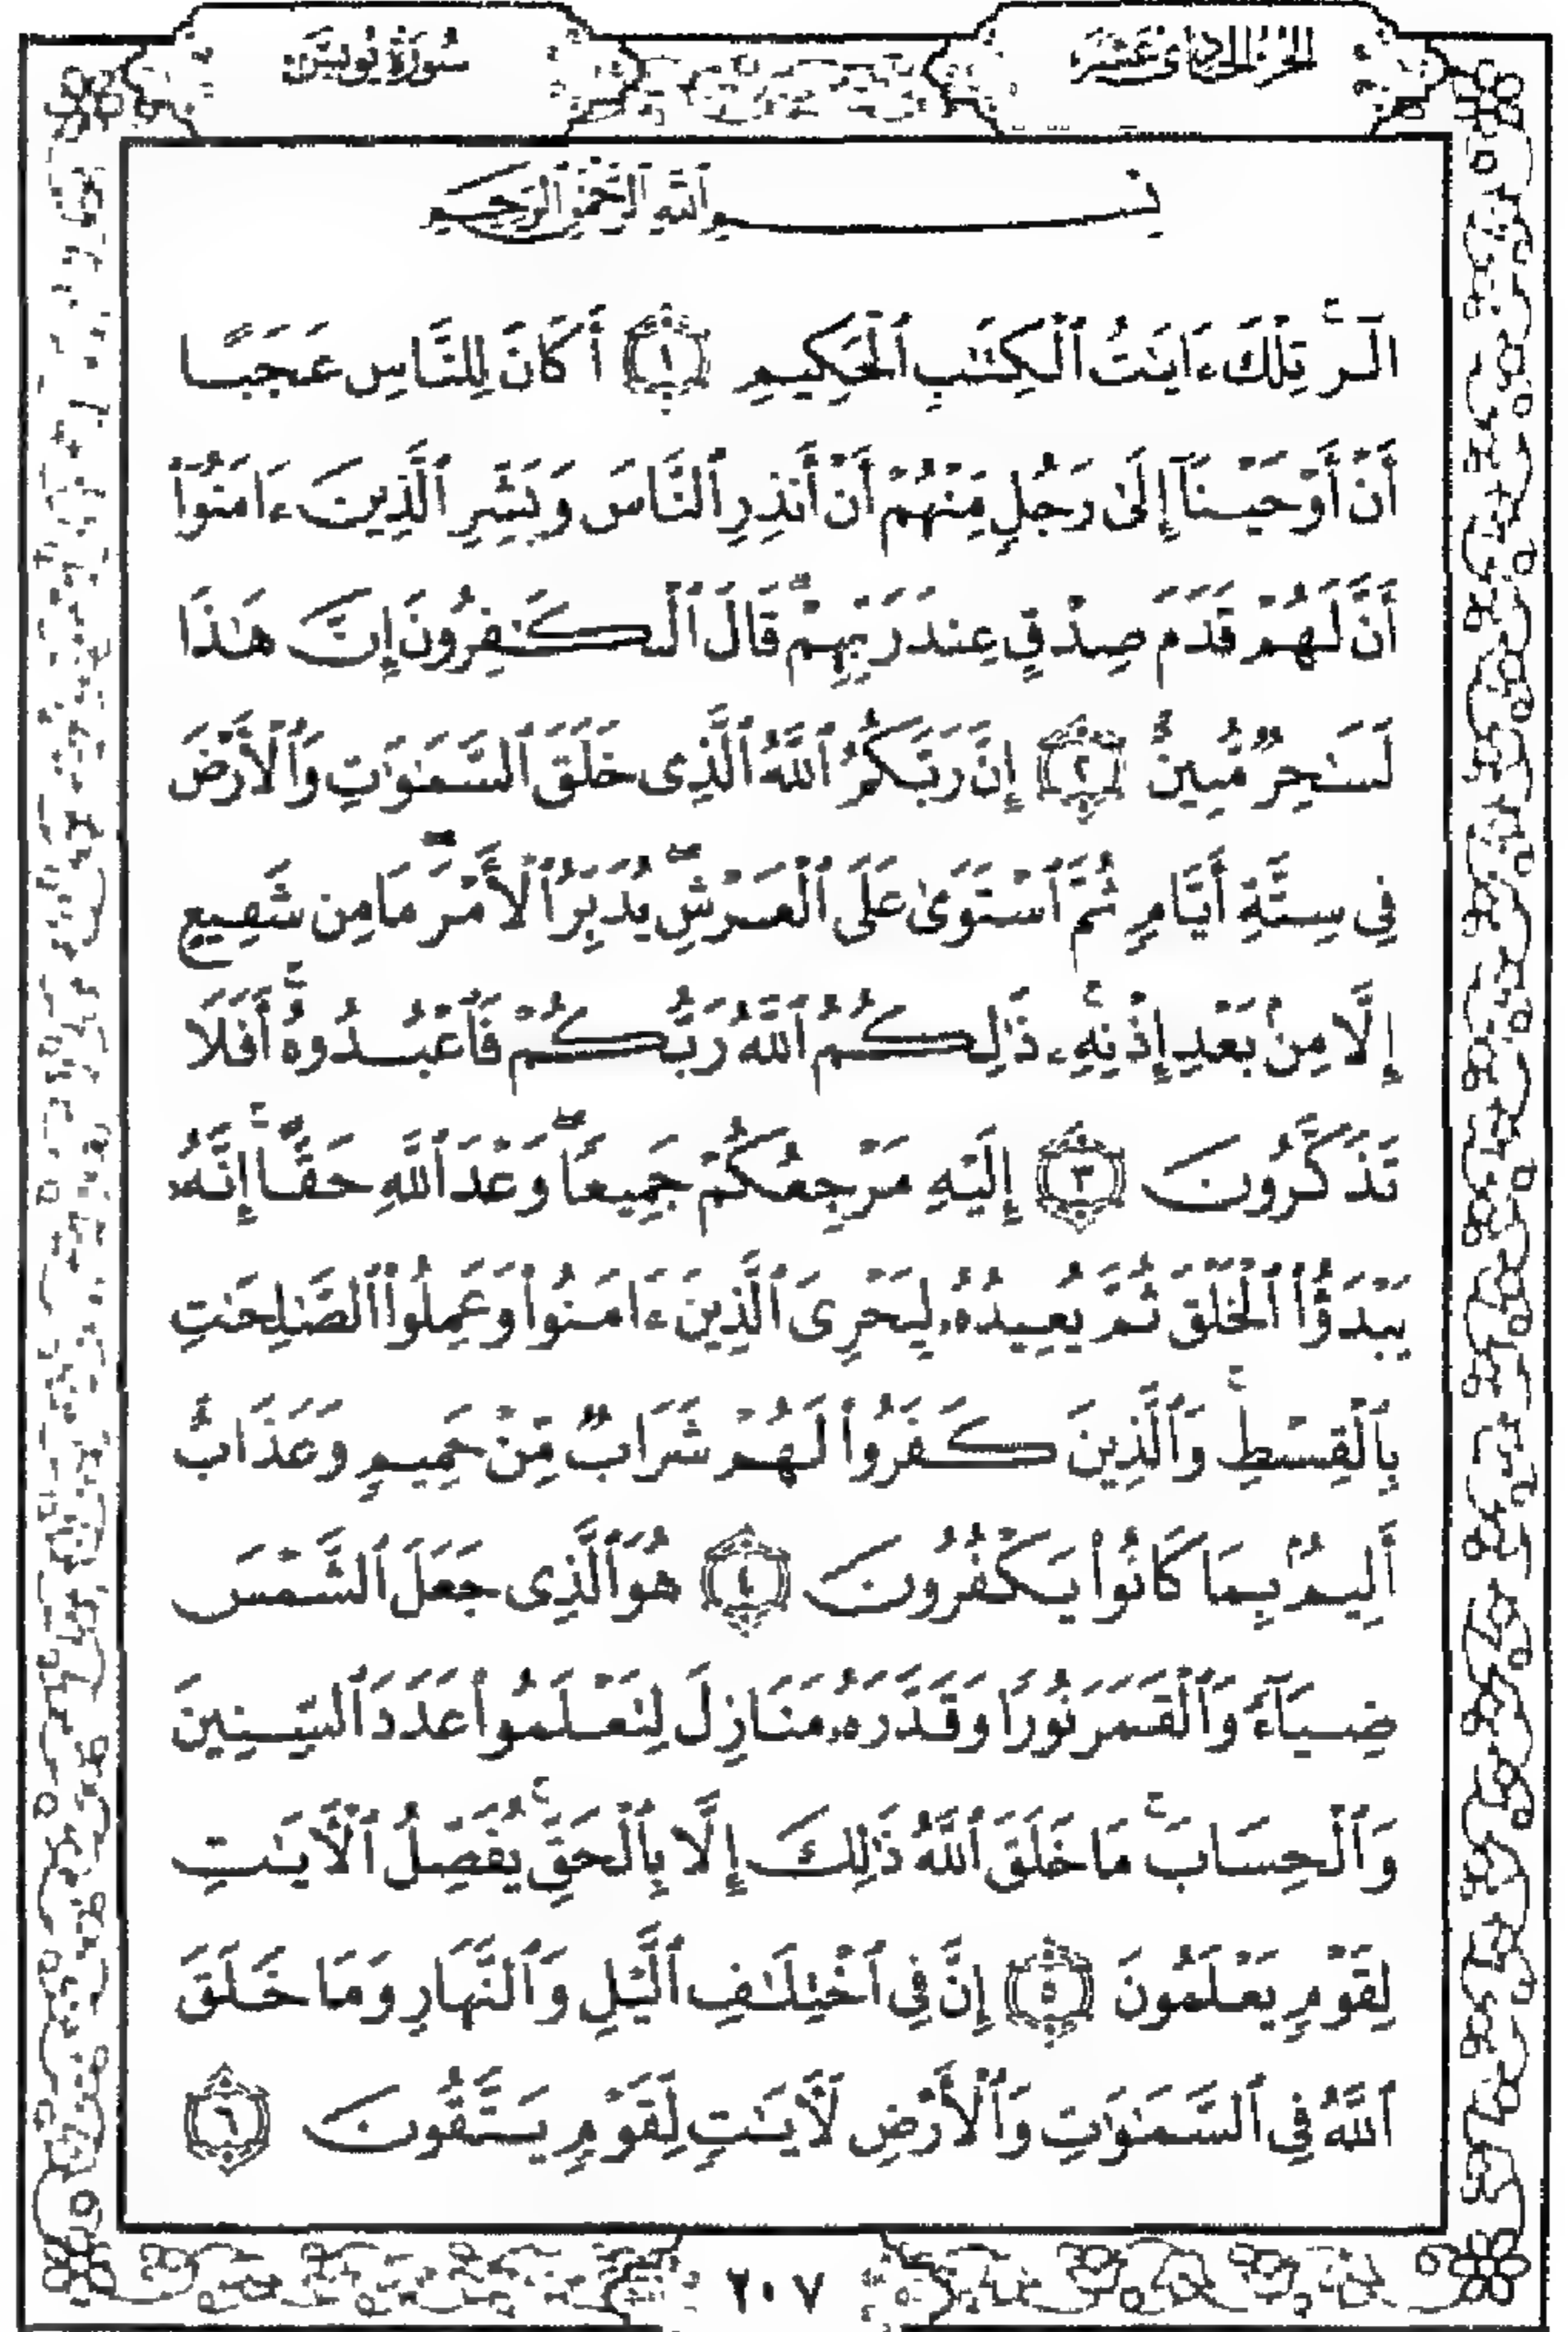 الجزء الحادي عشر
سورة يونس
بِسْمِ ٱللَّهِ ٱلرَّحْمَٰنِ ٱلرَّحِيمِ
الٓرۚ تِلْكَ ءَايَٰتُ ٱلْكِتَٰبِ ٱلْحَكِيمِ ١ أَكَانَ لِلنَّاسِ عَجَبًا
أَنْ أَوْحَيْنَآ إِلَىٰ رَجُلٍ مِّنْهُمْ أَنْ أَنذِرِ ٱلنَّاسَ وَبَشِّرِ ٱلَّذِينَ ءَامَنُوٓا۟
أَنَّ لَهُمْ قَدَمَ صِدْقٍ عِندَ رَبِّهِمْۗ قَالَ ٱلْكَٰفِرُونَ إِنَّ هَٰذَا
لَسَٰحِرٌ مُّبِينٌ ٢ إِنَّ رَبَّكُمُ ٱللَّهُ ٱلَّذِى خَلَقَ ٱلسَّمَٰوَٰتِ وَٱلْأَرْضَ
فِى سِتَّةِ أَيَّامٍ ثُمَّ ٱسْتَوَىٰ عَلَى ٱلْعَرْشِۖ يُدَبِّرُ ٱلْأَمْرَۖ مَا مِن شَفِيعٍ
إِلَّا مِنۢ بَعْدِ إِذْنِهِۦۚ ذَٰلِكُمُ ٱللَّهُ رَبُّكُمْ فَٱعْبُدُوهُۚ أَفَلَا
تَذَكَّرُونَ ٣ إِلَيْهِ مَرْجِعُكُمْ جَمِيعًاۖ وَعْدَ ٱللَّهِ حَقًّاۚ إِنَّهُۥ
يَبْدَؤُا۟ ٱلْخَلْقَ ثُمَّ يُعِيدُهُۥ لِيَجْزِىَ ٱلَّذِينَ ءَامَنُوا۟ وَعَمِلُوا۟ ٱلصَّٰلِحَٰتِ
بِٱلْقِسْطِۚ وَٱلَّذِينَ كَفَرُوا۟ لَهُمْ شَرَابٌ مِّنْ حَمِيمٍ وَعَذَابٌ
أَلِيمٌۢ بِمَا كَانُوا۟ يَكْفُرُونَ ٤ هُوَ ٱلَّذِى جَعَلَ ٱلشَّمْسَ
ضِيَآءً وَٱلْقَمَرَ نُورًا وَقَدَّرَهُۥ مَنَازِلَ لِتَعْلَمُوا۟ عَدَدَ ٱلسِّنِينَ
وَٱلْحِسَابَۚ مَا خَلَقَ ٱللَّهُ ذَٰلِكَ إِلَّا بِٱلْحَقِّۚ يُفَصِّلُ ٱلْءَايَٰتِ
لِقَوْمٍ يَعْلَمُونَ ٥ إِنَّ فِى ٱخْتِلَٰفِ ٱلَّيْلِ وَٱلنَّهَارِ وَمَا خَلَقَ
ٱللَّهُ فِى ٱلسَّمَٰوَٰتِ وَٱلْأَرْضِ لَءَايَٰتٍ لِّقَوْمٍ يَتَّقُونَ ٦
٢٠٧